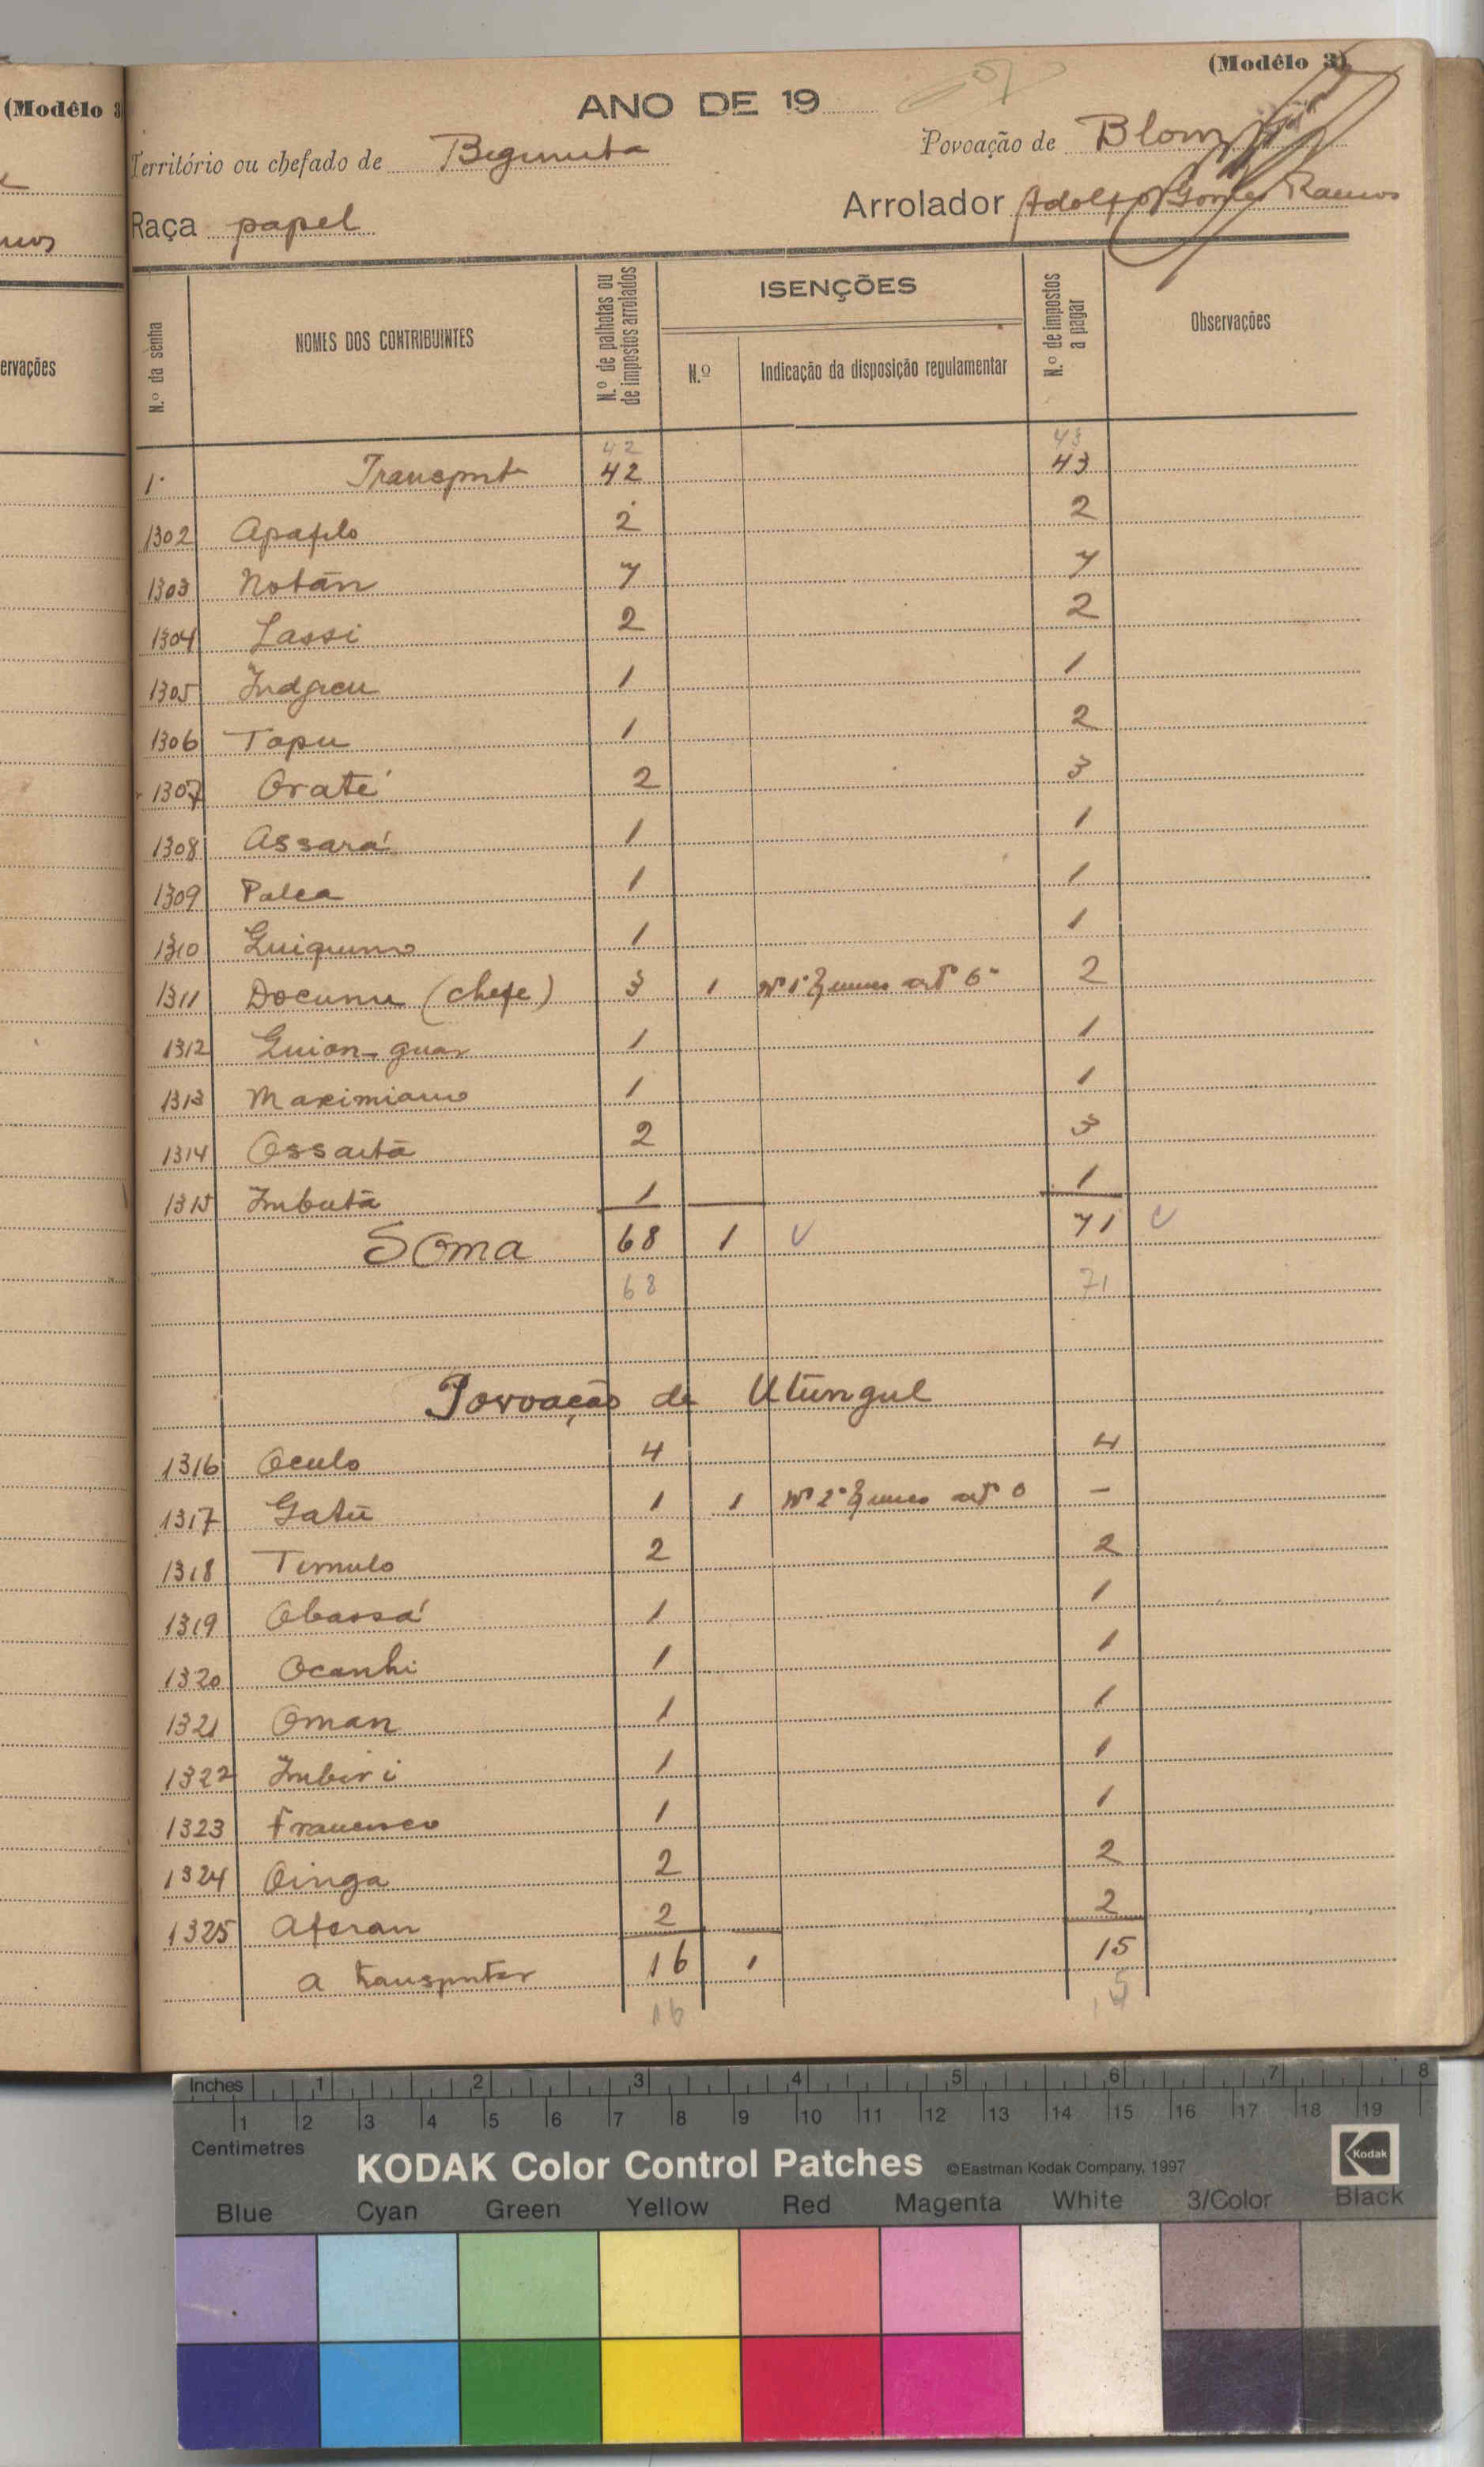 (Modêlo 3
ervações
(Modêlo 3)
ANO DE 19
Território ou chefado de Bigimita
Povoação de Blom
Raça papel
Arrolador Adolfo Gomes Ramos
N.º da senha
NOMES DOS CONTRIBUINTES
N.º de palhotas ou de impostos arrolados
ISENÇÕES
N.º
Indicação da disposição regulamentar
N.º de impostos a pagar
Observações
42 43
Transporte 42 43
1302 Apafilo 2 2
1303 Notān 7 7
1304 Lassi 2 2
1305 1 1
1306 Tapu 1 2
1307 Oraté 2 3
1308 Assará 1 1
1309 Palca 1 1
1310 1 1
1311 Documu (chefe) 3 1 2
1312 Guion-guar 1 1
1313 Maximiano 1 1
1314 Ossaitā 2 3
1315 Imbutā 1 1
Soma 68 1 71
68 71
Povoação de Utungul
1316 Oculo 4 4
1317 Gatū 1 1 -
1318 Timulo 2 2
1319 Obassá 1 1
1320 Ocanhi 1 1
1321 Oman 1 1
1322 Imbiri 1 1
1323 Francisco 1 1
1324 Oinga 2 2
1325 Aferan 2 2
a transportar 16 1 15
16 15
Inches 1 2 3 4 5 6 7 8
1 2 3 4 5 6 7 8 9 10 11 12 13 14 15 16 17 18 19
Centimetres
KODAK Color Control Patches ©Eastman Kodak Company, 1997 Kodak
Blue Cyan Green Yellow Red Magenta White 3/Color Black